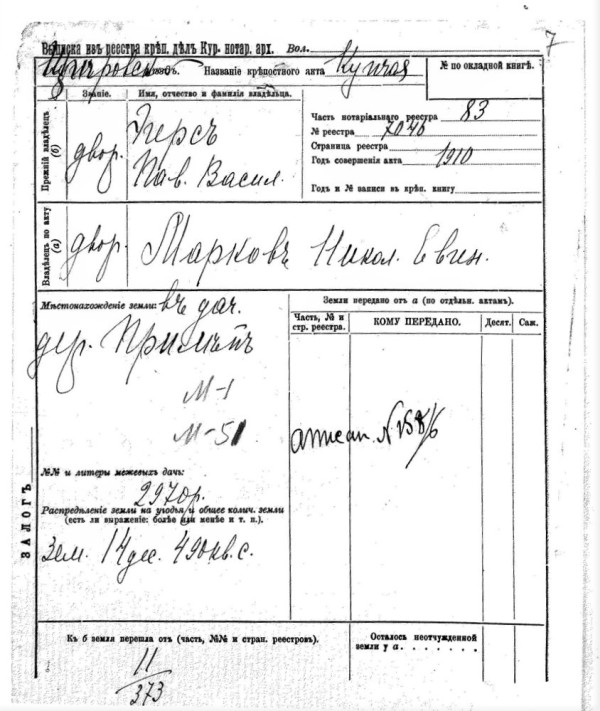 7
Выписка изъ реестра крѣп. дѣлъ Кур. нотар. арх. Вол.
уѣздъ. Названіе крѣпостного акта Купчая
№ по окладной книгѣ.
Званіе. Имя, отчество и фамилія владѣльца.
Прежній владѣлецъ (б)
двор. Герсъ
Пав. Васил.
Часть нотаріальнаго реестра 83
№ реестра 7046
Страница реестра
Годъ совершенія акта 1910
Годъ и № записи въ крѣп. книгу
Владѣлецъ по акту (а)
двор. Марковъ Никол. Евген.
Мѣстонахожденіе земли: въ дач.
дер.
М-1
М-51
Земли передано отъ а (по отдѣльн. актамъ).
Часть, № и стр. реестра. КОМУ ПЕРЕДАНО. Десят. Саж.
№№ и литеры межевыхъ дачъ:
Распредѣленіе земли на угодья и общее колич. земли
(есть ли выраженіе: болѣе или менѣе и т. п.).
Зем. 14 дес. 490 кв. с.
ЗАЛОГЪ
Къ б земля перешла отъ (часть, №№ и стран. реестровъ).
11
373
Осталось неотчужденной
земли у а